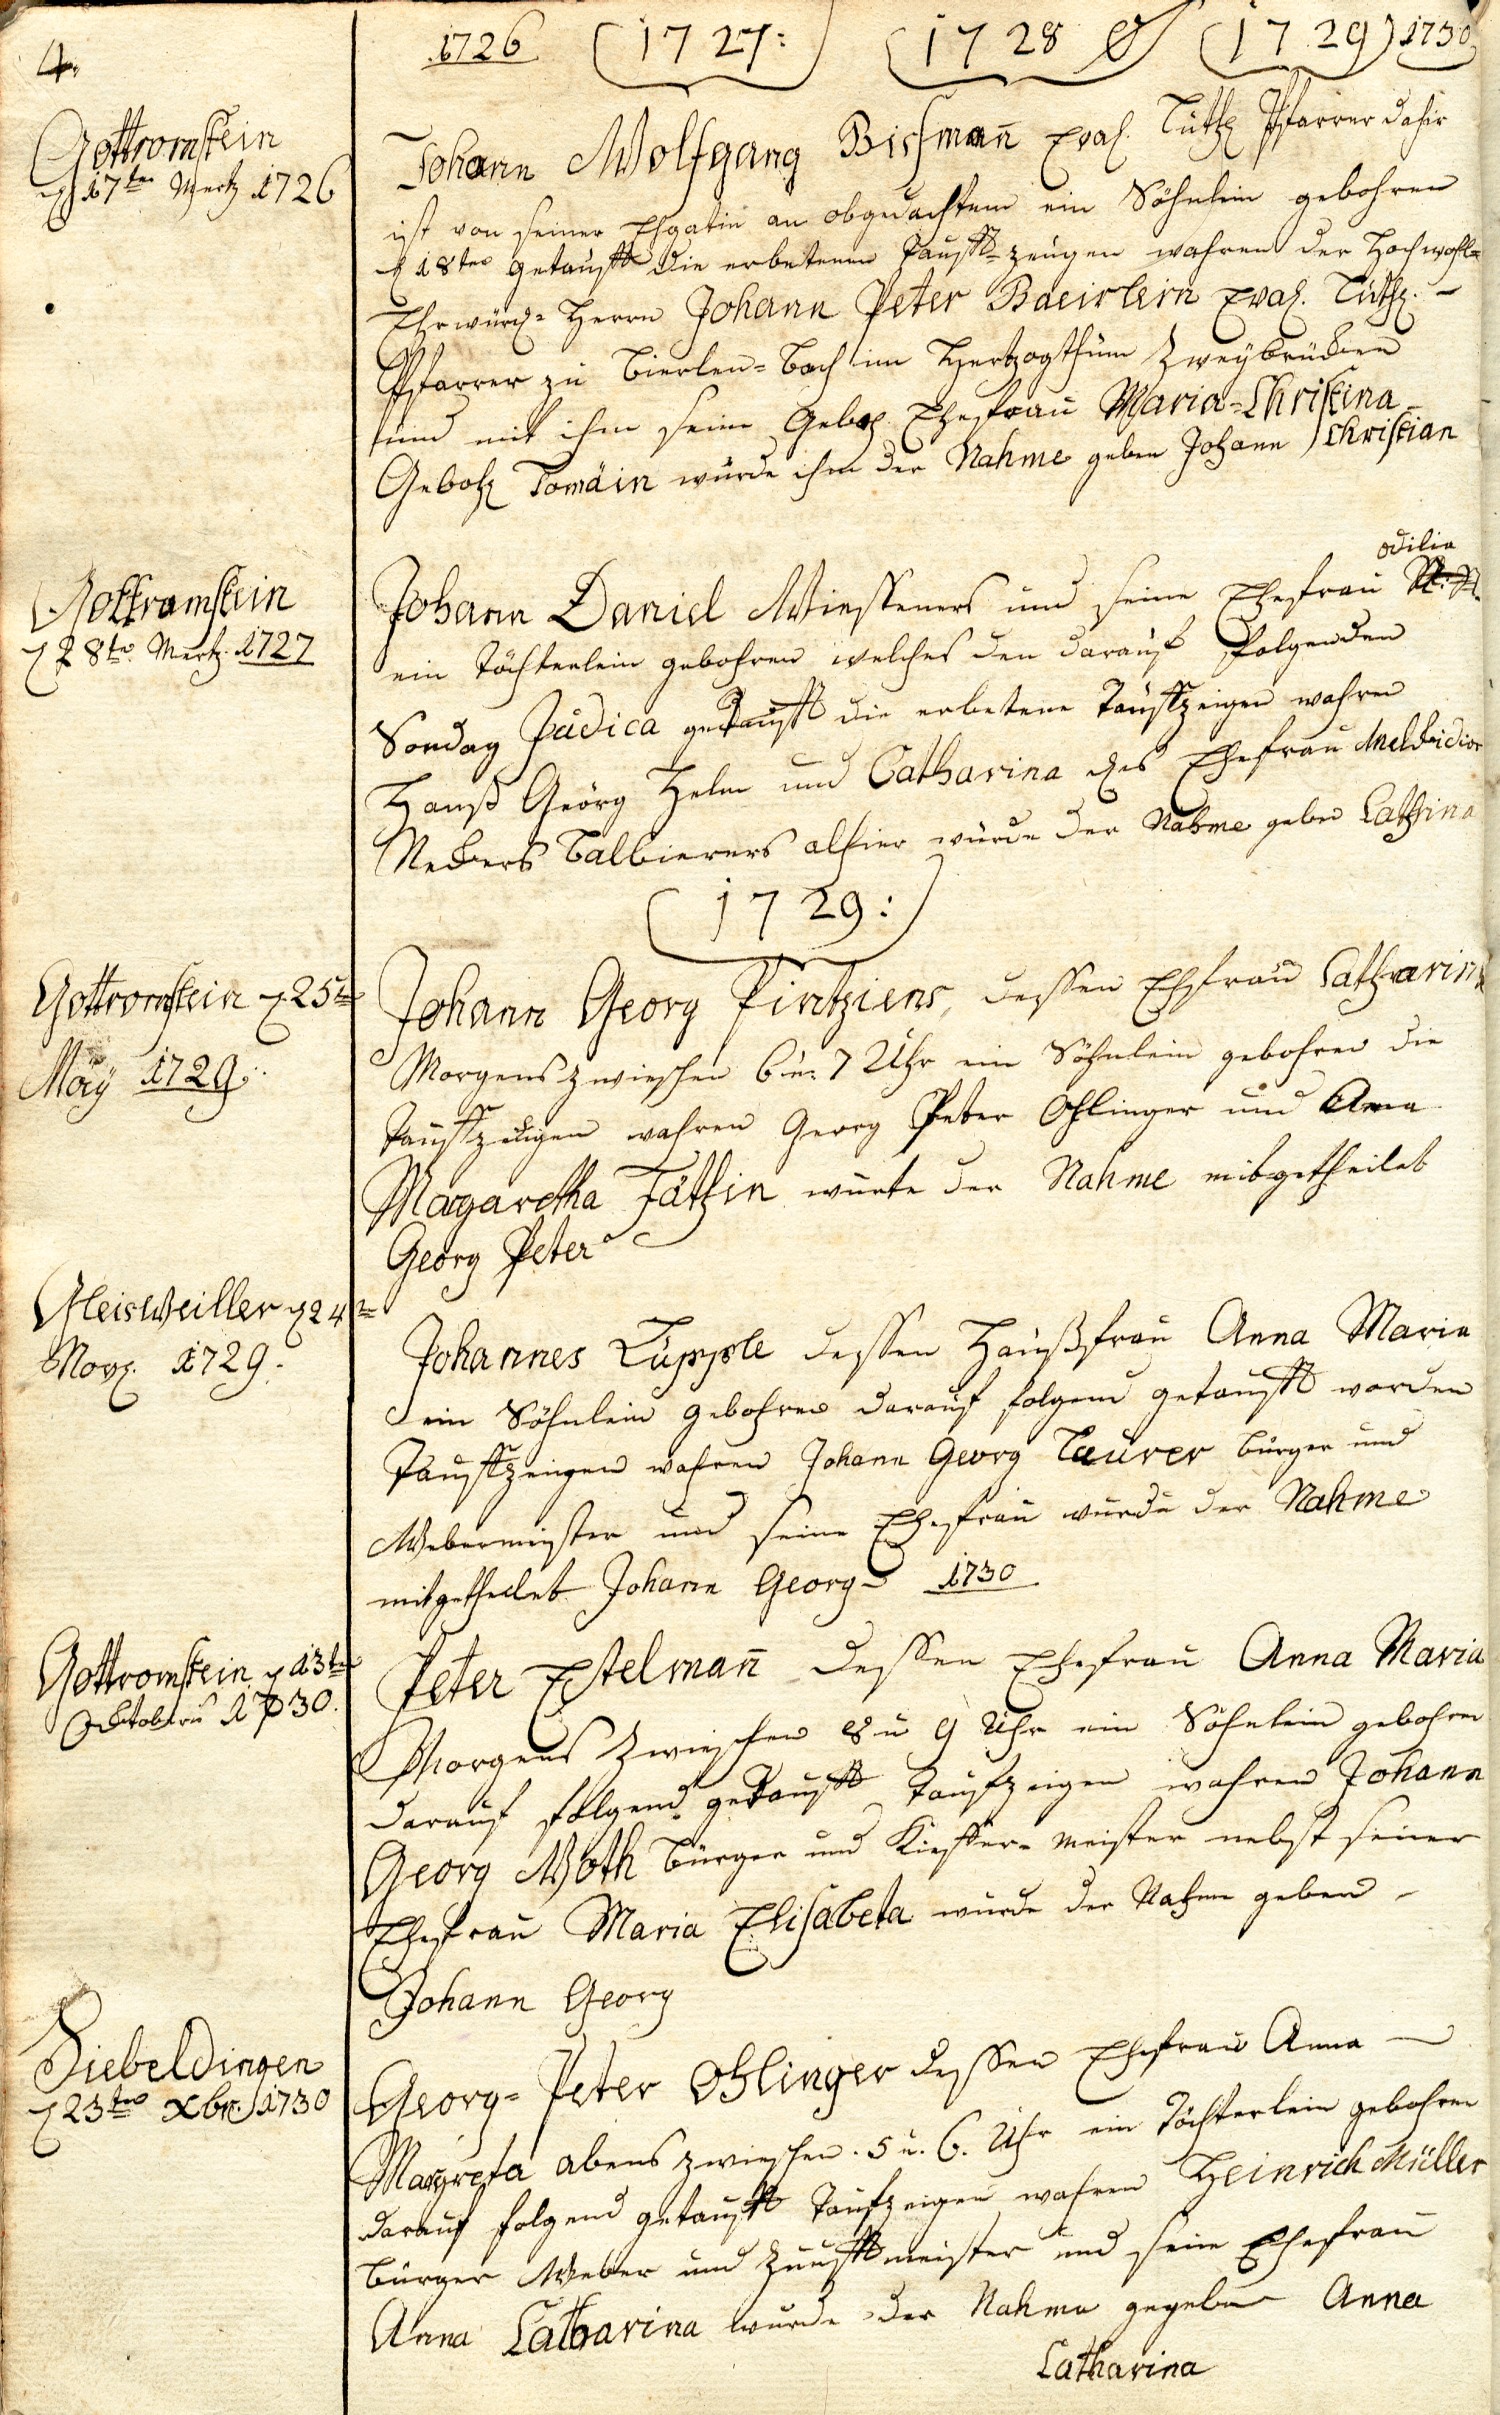 4.
1726 1727: 1728 1729 1730
Gottromstein
d 17ten Mertz 1726
Johann Wolfgang Bissmann Evag. Luth Pfarrer dahir
ist von seiner Ehgatin an obgedachtem ein Söhnlein gebohren
d 18ten getaufft Die erbetenen Tauff-zeugen wahren der Hochwohl-
Ehrwürd- Herrn Johann Peter Baeirlein Evag. Luth. -
Pfarrer zu Bierlen-Bach im Hertzogthum Zweybrücken
und mit ihm seine Ehefrau Maria-Christina
Geboh Tomäin wurde ihm der Nahme geben Johann Christian
Gottromstein
d 28te. Mertz. 1727
odilia
Johann Daniel Wiesseners und seine Ehefrau N: N.
ein Töchterlein gebohren welches den darauf Folgenden
Sondag Judica getaufft die erbetene Tauffzeigen wahren
Hanß Geörg Helm und Catharina des Ehefrau
Neckers Balbierers alhier wurde der Nahme geben Cathrina
1729:
Gottromstein d 25te
Maÿ 1729.
Johann Georg Pintziens, dessen Ehfrau Catharina
Morgens zwieschen 6 u. 7 Uhr ein Söhnlein gebohren die
Tauffzeugen wahren Georg Peter Ohlinger und Anna
Magaretha Fätzin wurte der Nahme mitgetheilet
Georg Peter
Gleisweiller d 24te
Nov. 1729.
Johannes Lüpple dessen Haußfrau Anna Maria
ein Söhnlein gebohren darauf folgend getaufft worden
Tauffzeigen wahren Johann Georg Laurer Bürger und
Webermeister und seine Ehefrau wurde der Nahme
mitgetheilet Johann Georg 1730
Gottromstein d 13te
Octobris 1730.
Peter Estelmann Dessen Ehefrau Anna Maria
Morgens zwieschen 8 u 9 Uhr ein Söhnlein gebohren
darauf folgend getaufft Taufzeigen wahren Johann
Georg Woth Bürger und Kieffer-meister nebst seiner
Ehefrau Maria Elisabeta wurde der Nahme geben -
Johann Georg
Siebeldingen
d 23ten Xbr. 1730
Georg-Peter Ohlinger dessen Ehefrau Anna
Margreta abens zwieschen. 5 u. 6. Uhr ein Töchterlein gebohren
darauf folgend getaufft Taufzeigen wahren Heinrich Müller
Bürger Weber und Zunfftmeister und sein Ehefrau
Anna Catharina wurde der Nahme gegeben Anna
Catharina